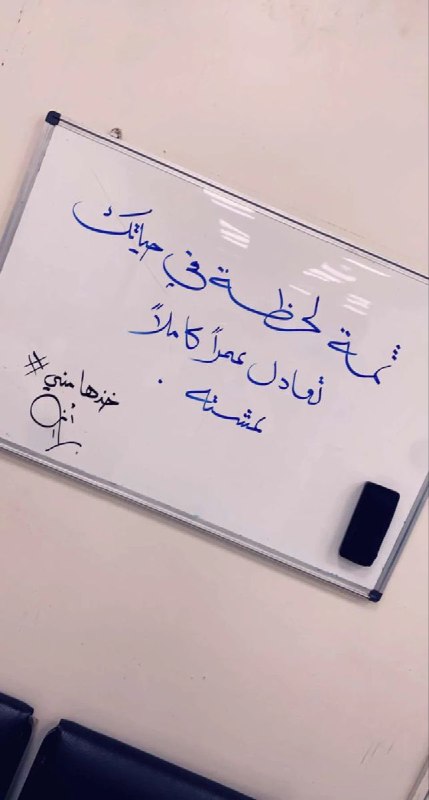 ثمة لحظة في حياتك
تعادل عمراً كاملاً
عشته .
#خذها مني